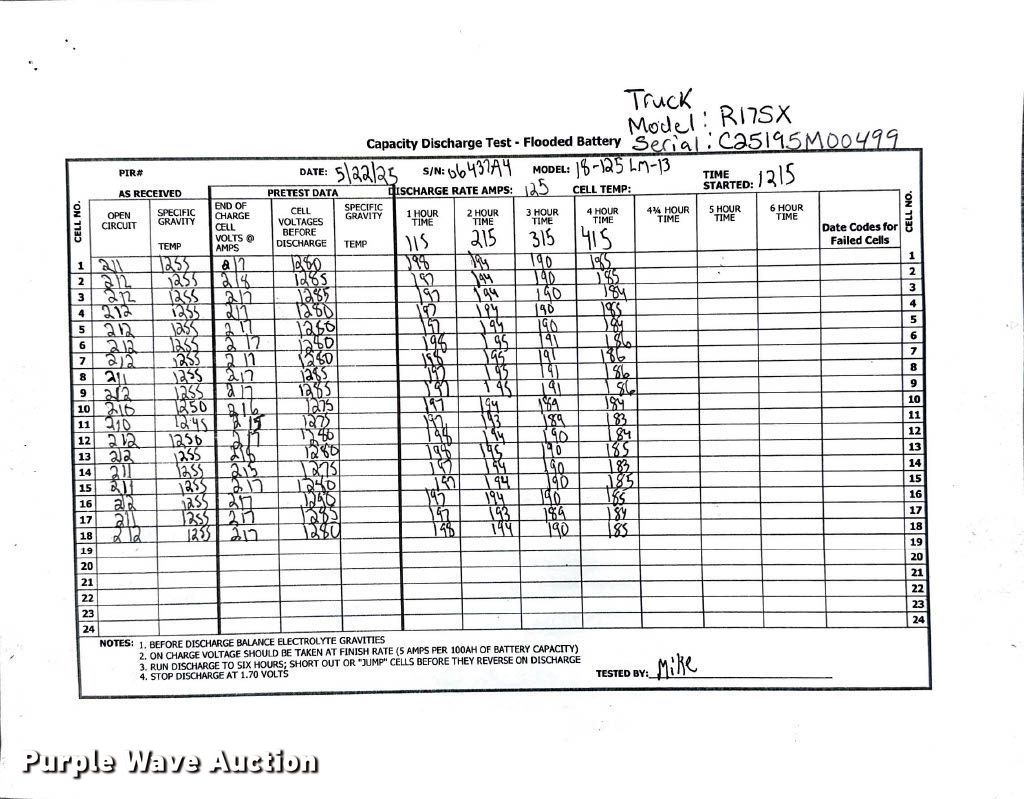 Truck
Model: R17SX
Serial: C25195M00499
Capacity Discharge Test - Flooded Battery
PIR# DATE: 5/22/25 S/N: 06437A4 MODEL: 18-125 LM-13 TIME STARTED: 1215
AS RECEIVED PRETEST DATA DISCHARGE RATE AMPS: 125 CELL TEMP:
CELL NO. OPEN CIRCUIT SPECIFIC GRAVITY TEMP END OF CHARGE CELL VOLTS @ AMPS CELL VOLTAGES BEFORE DISCHARGE SPECIFIC GRAVITY TEMP 1 HOUR TIME 2 HOUR TIME 3 HOUR TIME 4 HOUR TIME 4¾ HOUR TIME 5 HOUR TIME 6 HOUR TIME Date Codes for Failed Cells CELL NO.
115 215 315 415
1 211 1255 217 1280 198 194 190 185 1
2 212 1255 218 1285 197 194 190 185 2
3 212 1255 217 1285 197 194 190 184 3
4 212 1255 217 1280 197 194 190 185 4
5 212 1255 217 1280 197 194 190 184 5
6 212 1255 217 1280 198 195 191 186 6
7 212 1255 217 1280 198 195 191 186 7
8 211 1255 217 1285 197 195 191 186 8
9 212 1255 217 1285 197 195 191 186 9
10 210 1250 216 1275 197 194 189 184 10
11 210 1245 215 1275 197 193 189 183 11
12 212 1250 217 1280 198 194 190 184 12
13 212 1255 218 1280 198 195 190 185 13
14 211 1255 215 1275 197 194 190 183 14
15 211 1255 217 1280 197 194 190 185 15
16 212 1255 217 1290 197 194 190 185 16
17 211 1255 217 1285 197 193 189 184 17
18 212 1255 217 1280 198 194 190 185 18
19 19
20 20
21 21
22 22
23 23
24 24
NOTES: 1. BEFORE DISCHARGE BALANCE ELECTROLYTE GRAVITIES
2. ON CHARGE VOLTAGE SHOULD BE TAKEN AT FINISH RATE (5 AMPS PER 100AH OF BATTERY CAPACITY)
3. RUN DISCHARGE TO SIX HOURS; SHORT OUT OR "JUMP" CELLS BEFORE THEY REVERSE ON DISCHARGE
4. STOP DISCHARGE AT 1.70 VOLTS
TESTED BY: Mike
Purple Wave Auction